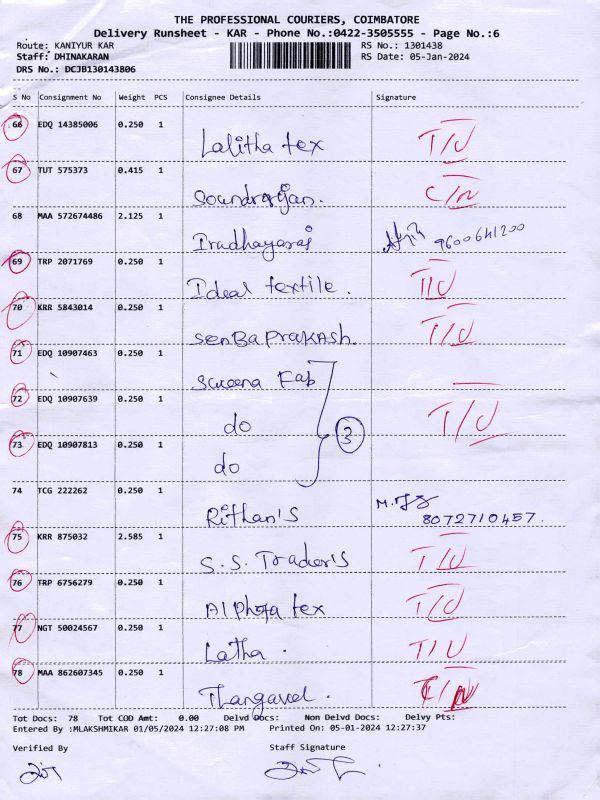 THE PROFESSIONAL COURIERS, COIMBATORE
Delivery Runsheet - KAR - Phone No.:0422-3505555 - Page No.:6
Route: KANIYUR KAR RS No.: 1301438
Staff: DHINAKARAN RS Date: 05-Jan-2024
DRS No.: DCJB130143806
S No Consignment No Weight PCS Consignee Details Signature
66 EDQ 14385006 0.250 1
Lalitha tex T/U
67 TUT 575373 0.415 1
Soundrarajan. C/N
68 MAA 572674486 2.125 1
Iradhayaraj 9600641200
69 TRP 2071769 0.250 1
Ideal textile. T/U
70 KRR 5843014 0.250 1
SenBaPrakash. T/U
71 EDQ 10907463 0.250 1
Sureena Fab
72 EDQ 10907639 0.250 1
do 3 T/U
73 EDQ 10907813 0.250 1
do
74 TCG 222262 0.250 1
Rithan's 8072710457.
75 KRR 875032 2.585 1
S.S. Trader's T/U
76 TRP 6756279 0.250 1
Alphota tex T/U
77 NGT 50024567 0.250 1
Latha. T/U
78 MAA 862607345 0.250 1
Thangavel. C/N
Tot Docs: 78 Tot COD Amt: 0.00 Delvd Docs: Non Delvd Docs: Delvy Pts:
Entered By :MLAKSHMIKAR 01/05/2024 12:27:08 PM Printed On: 05-01-2024 12:27:37
Verified By Staff Signature